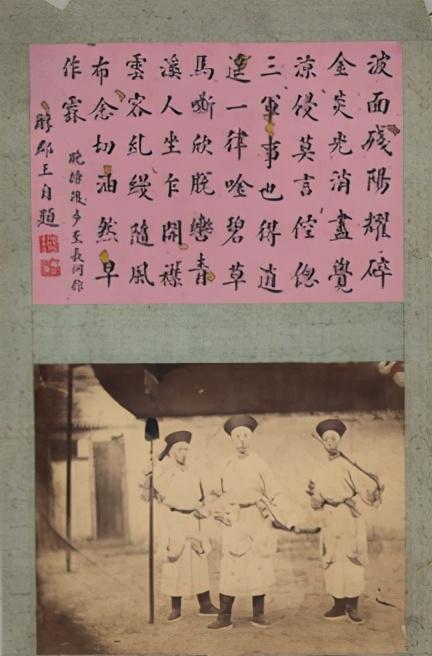 波面殘陽耀碎
金炎光消盡覺
涼侵莫言倥偬
三軍事也得逍
遙一律唫碧草
馬嘶欣脫轡青
溪人坐乍開襟
雲容乱縵隨風
布念切油然早
作霖
晚操後步至長河作
醇郡王自題